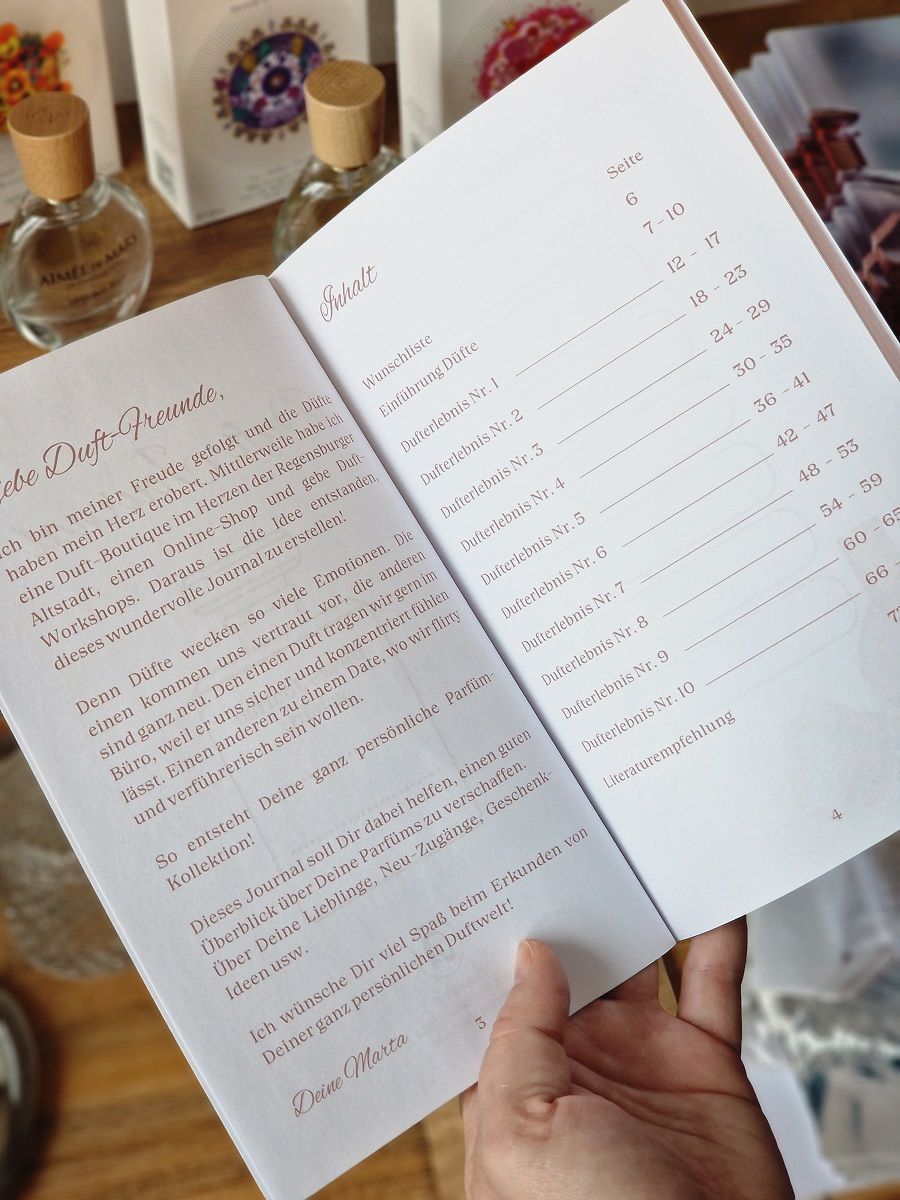 AIMÉE DE MARS
Liebe Duft-Freunde,
ich bin meiner Freude gefolgt und die Düfte
haben mein Herz erobert. Mittlerweile habe ich
eine Duft-Boutique im Herzen der Regensburger
Altstadt, einen Online-Shop und gebe Duft-
Workshops. Daraus ist die Idee entstanden,
dieses wundervolle Journal zu erstellen!
Denn Düfte wecken so viele Emotionen. Die
einen kommen uns vertraut vor, die anderen
sind ganz neu. Den einen Duft tragen wir gern im
Büro, weil er uns sicher und konzentriert fühlen
lässt. Einen anderen zu einem Date, wo wir flirty
und verführerisch sein wollen.
So entsteht Deine ganz persönliche Parfüm-
Kollektion!
Dieses Journal soll Dir dabei helfen, einen guten
Überblick über Deine Parfüms zu verschaffen.
Über Deine Lieblinge, Neu-Zugänge, Geschenk-
Ideen usw.
Ich wünsche Dir viel Spaß beim Erkunden von
Deiner ganz persönlichen Duftwelt!
Deine Marta
3
Inhalt
Seite
Wunschliste 6
Einführung Düfte 7 - 10
Dufterlebnis Nr. 1 12 - 17
Dufterlebnis Nr. 2 18 - 23
Dufterlebnis Nr. 3 24 - 29
Dufterlebnis Nr. 4 30 - 35
Dufterlebnis Nr. 5 36 - 41
Dufterlebnis Nr. 6 42 - 47
Dufterlebnis Nr. 7 48 - 53
Dufterlebnis Nr. 8 54 - 59
Dufterlebnis Nr. 9 60 - 65
Dufterlebnis Nr. 10 66 -
Literaturempfehlung
4